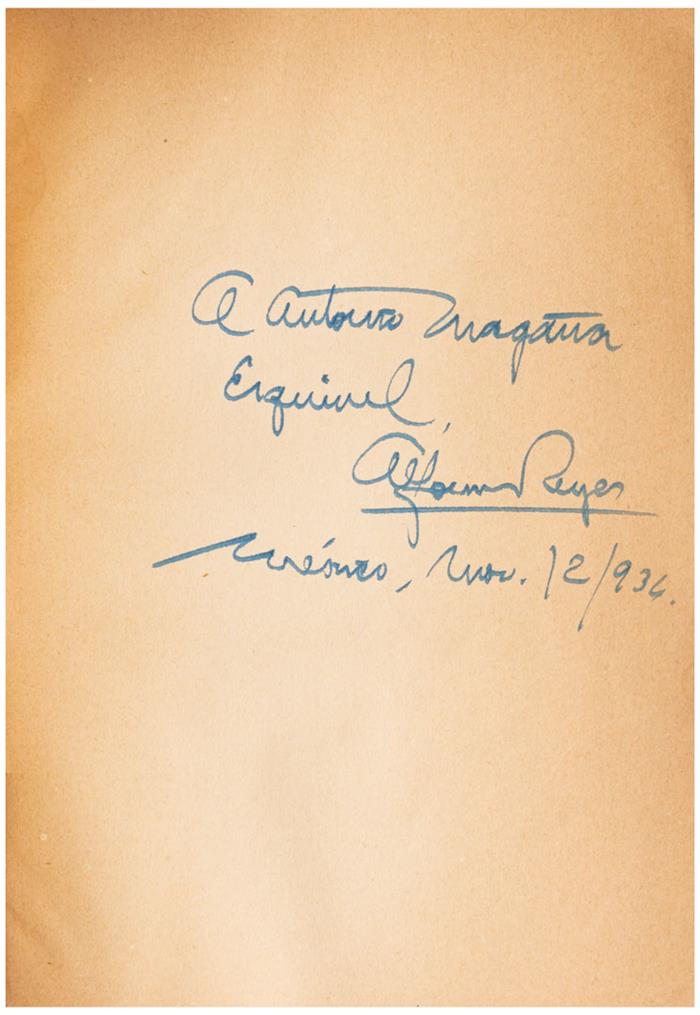 A Antonio Magaña
Esquivel,
Alfonso Reyes
México, Nov. 12/934.